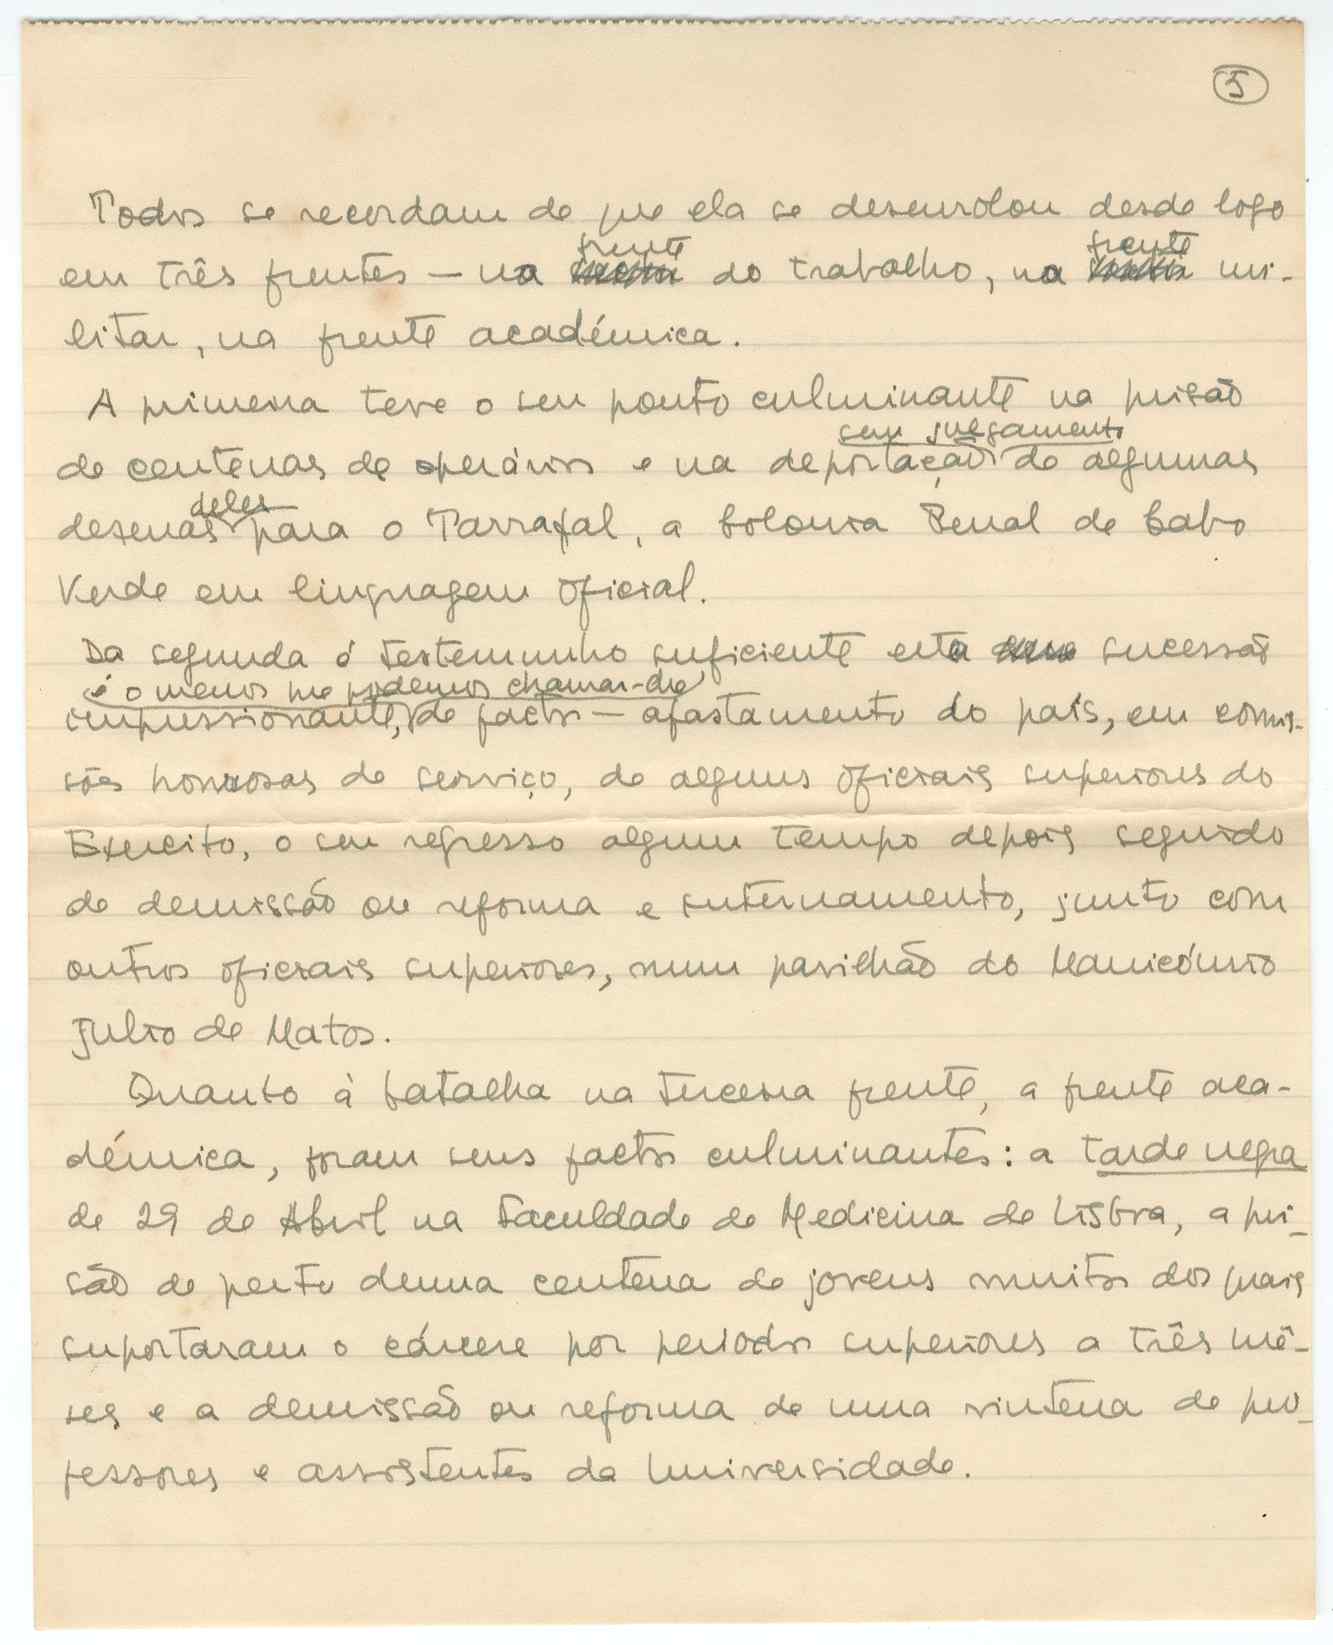 5
Todos se recordam de que ela se desenrolou desde logo
frente frente
em três frentes — na do trabalho, na mi-
litar, na frente académica.
A primeira teve o seu ponto culminante na prisão
sem julgamento
de centenas de operários e na deportação de algumas
deles
dezenas para o Tarrafal, a Colonia Penal de Cabo
Verde em linguagem oficial.
Da segunda é testemunho suficiente esta sucessão
é o menos que podemos chamar-lhe
impressionante, de factos — afastamento do país, em comis-
sões honrosas de serviço, de alguns oficiais superiores do
Exercito, o seu regresso algum tempo depois seguido
de demissão ou reforma e internamento, junto com
outros oficiais superiores, num pavilhão do Manicómio
Julio de Matos.
Quanto à batalha na terceira frente, a frente aca-
démica, foram seus factos culminantes: a tarde negra
de 29 de Abril na Faculdade de Medicina de Lisboa, a pri-
são de perto duma centena de jovens muitos dos quais
suportaram o cárcere por periodos superiores a três mê-
ses e a demissão ou reforma de uma vintena de pro-
fessores e assistentes da Universidade.